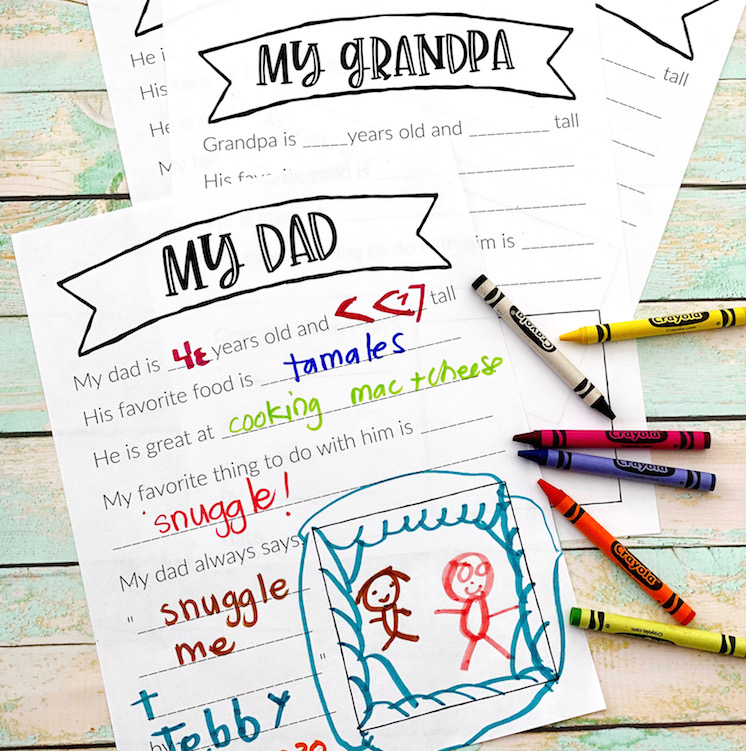 He i
His
He
My
tall
MY GRANDPA
Grandpa is _____ years old and _________ tall
His
him is ________
MY DAD
My dad is years old and tall
His favorite food is tamales
He is great at cooking mac + cheese
My favorite thing to do with him is ________
snuggle!
My dad always says:
" snuggle
me
"
Jebby
Crayola
Crayola
Crayola
Crayola
Crayola
Crayola